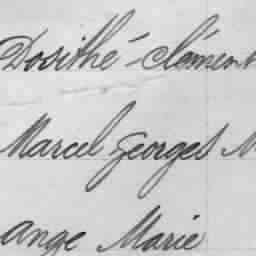 Dosithé Clément
Marcel Georges M
ange Marie